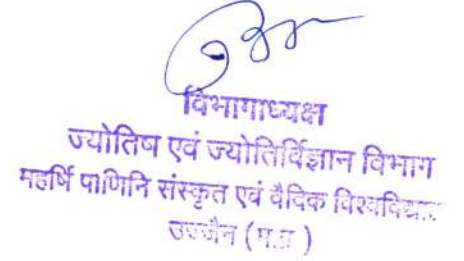 विभागाध्यक्ष
ज्योतिष एवं ज्योतिर्विज्ञान विभाग
महर्षि पाणिनि संस्कृत एवं वैदिक
उज्जैन (म.प्र )